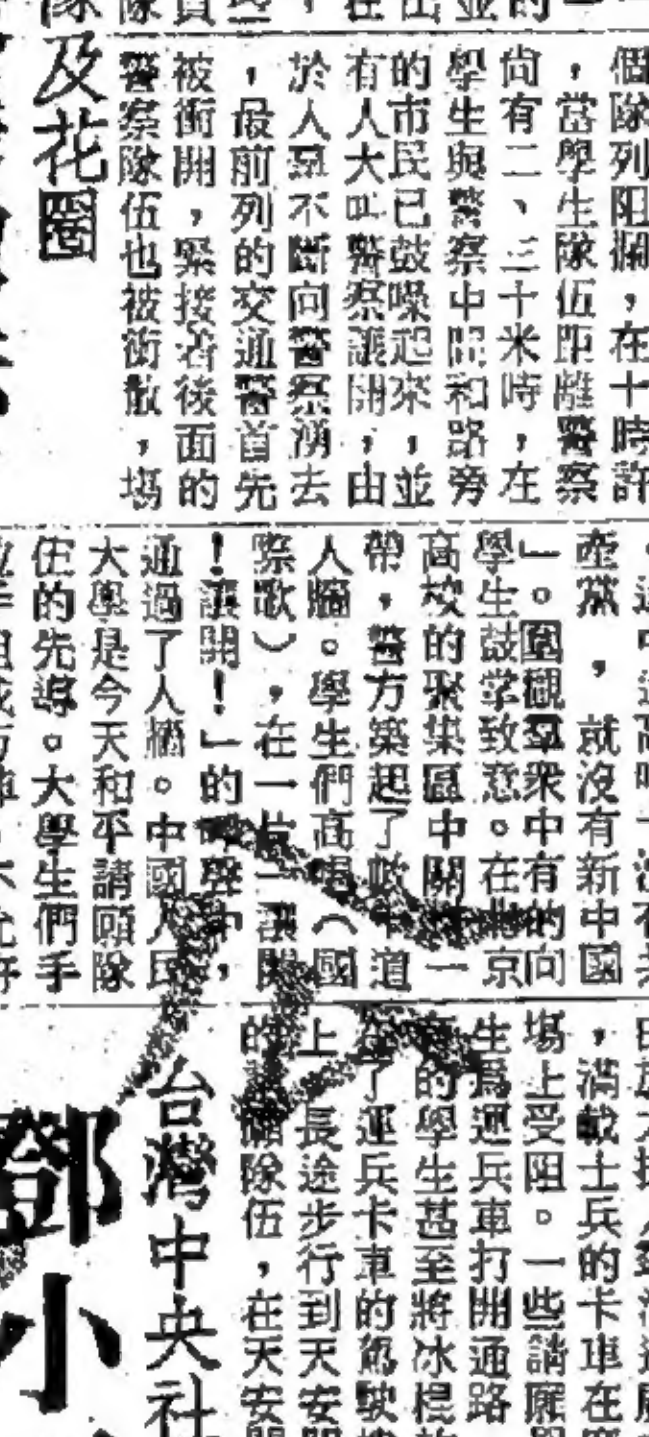 個隊列阻攔，在十時許
，當學生隊伍距離警察
尚有二、三十米時，在
學生與警察中間和路旁
的市民已鼓噪起來，並
有人大叫警察讓開，由
於人羣不斷向警察湧去
，最前列的交通警首先
被衝開，緊接着後面的
警察隊伍也被衝散，場
及花圈
產黨，就沒有新中國
」。圍觀羣衆中有的向
學生鼓掌致意。在北京
高校的聚集區中關村一
帶，警方築起了數道
人牆。學生們高唱（國
際歌），在一片「讓開
！讓開！」的聲中，
通過了人牆。中國人民
大學是今天和平請願隊
伍的先導。大學生們手
，滿載士兵的卡車在
場上受阻。一些請願
生爲運兵車打開通路
的學生甚至將冰棍
了運兵卡車的駕駛
上長途步行到天安
的隊伍，在天安
台灣中央社
鄧小